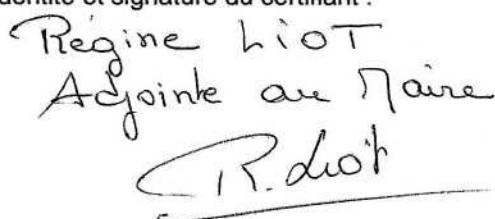 identité et signature du certifiant :
Régine LIOT
Adjointe au Maire
R. Liot